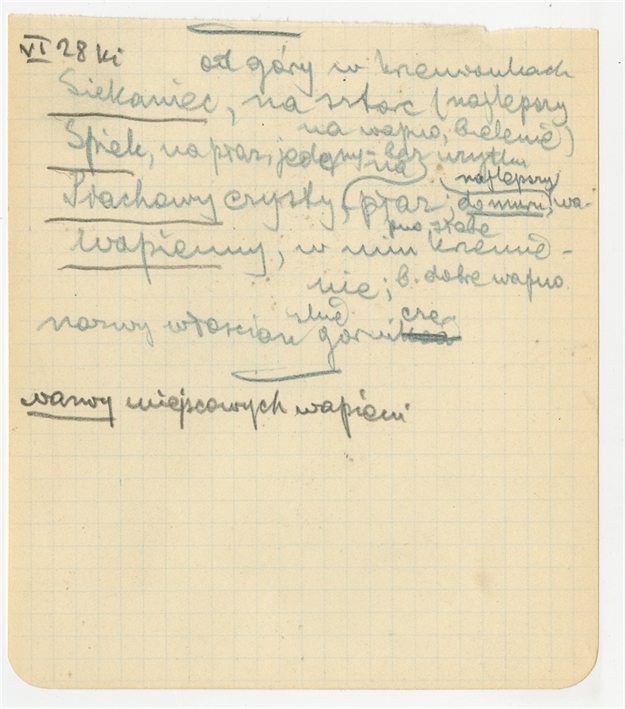 VI 28 Ki
od góry w Krzewonkach
Siekaniec, na sztorc (najlepszy
na wapno, bielenie)
Spiek, na płaz, jeden na bez użytku
Piachowy czysty, płaz, najlepszy do muru, wa-
pno słabe
Wapienny, w nim krzemie-
nie; b. dobre wapno
nazwy włościan
nazwy miejscowych wapieni